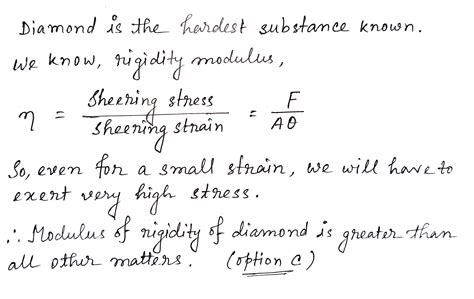 Diamond is the hardest substance known.
We know, rigidity modulus,
η = Sheering stress / Sheering strain = F / Aθ
So, even for a small strain, we will have to
exert very high stress.
∴ Modulus of rigidity of diamond is greater than
all other matters. (option c)